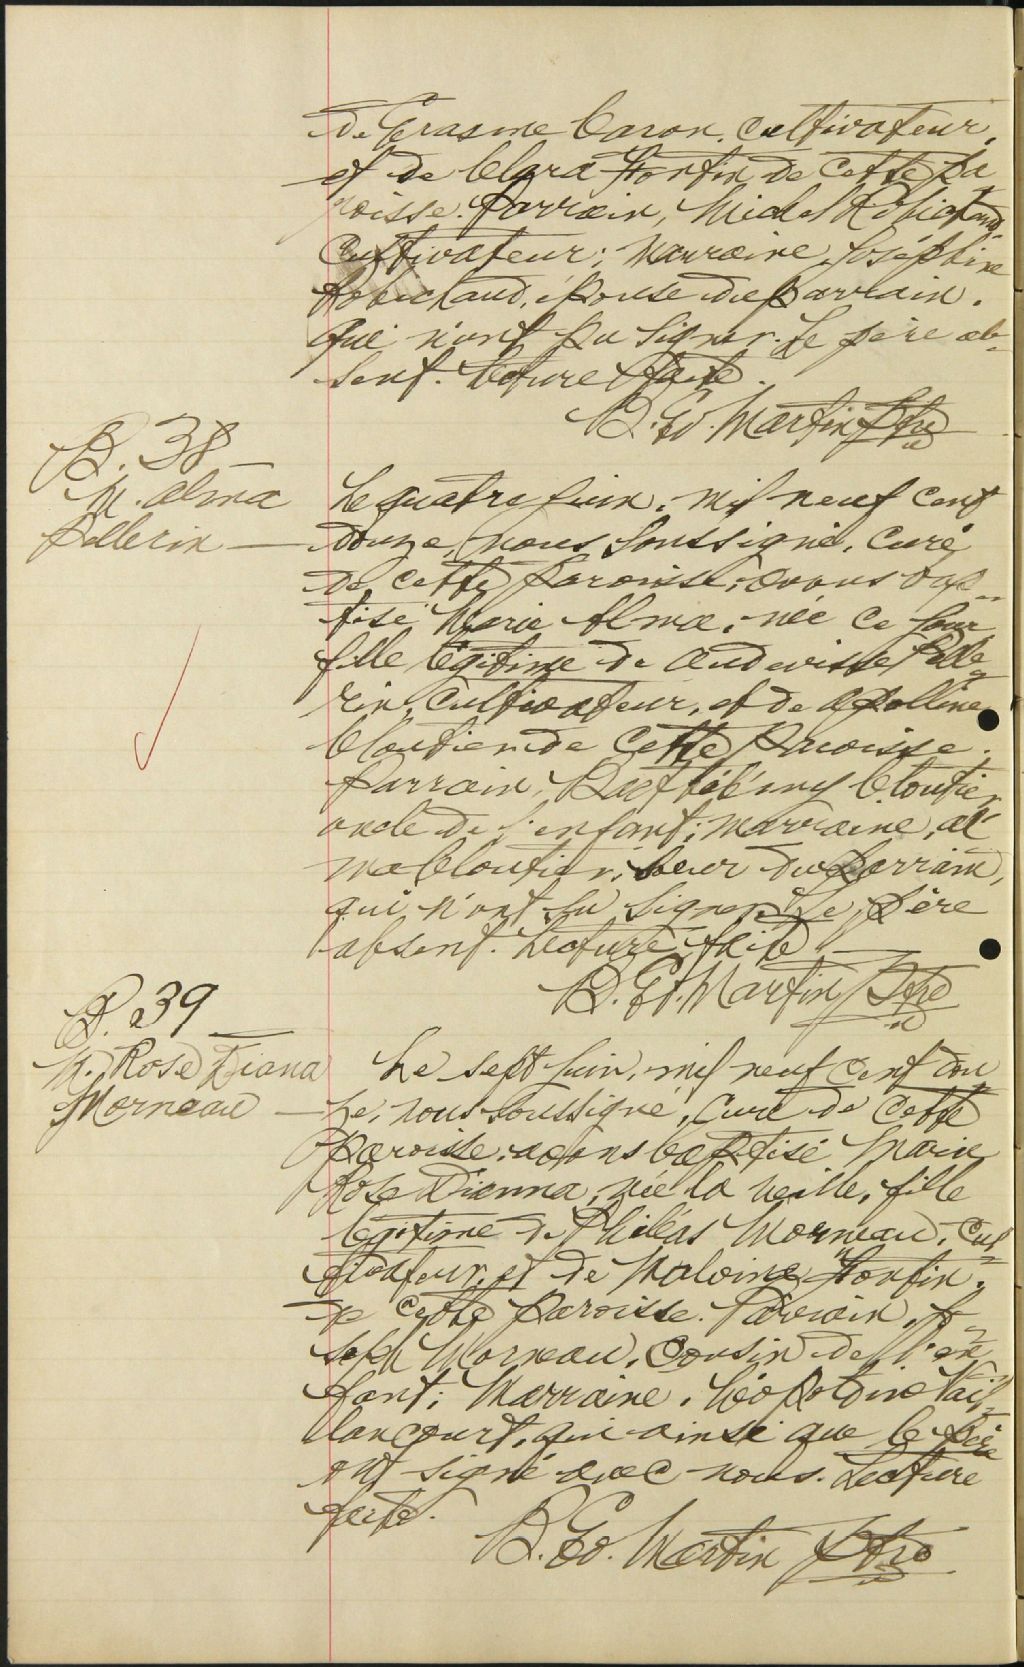 de Erasme Caron, Cultivateur,
et de Clara Fortin de Cette Pa
roisse. Parrain, Michel Robichaud,
Cultivateur; Marraine, Joséphine
Robichaud, épouse du parrain.
qui n'ont pu signer. Le père ab-
sent. Lecture faite.
B. Ed. Martin Ptre
B. 38
M. Alma
Pellerin
Le quatre Juin, mil neuf cent
douze, nous soussigné, Curé
de cette Paroisse, avons bap-
tisé Marie Alma, née ce jour
fille légitime de Pelle-
rin, Cultivateur, et de Apolline
Cloutier de Cette Paroisse.
Parrain, Cloutier
oncle de l'enfant; marraine, Al
ma Cloutier, soeur du parrain,
qui n'ont su signer. Le père
absent. Lecture faite
B. Ed. Martin Ptre
B. 39
M. Rose Diana
Morneau
Le sept Juin, mil neuf cent dou
ze, nous soussigné, Curé de Cette
Paroisse, avons baptisé Marie
Rose Dianna, née la veille, fille
légitime de Philéas Morneau, Cul
tivateur, et de Malvina Fortin,
de Cette Paroisse. Parrain, Jo-
seph Morneau, Cousin de l'en
fant; Marraine, Léopoldine Vail-
lancourt, qui ainsi que le père
ont signé avec nous. Lecture
faite.
B. Ed. Martin Ptre